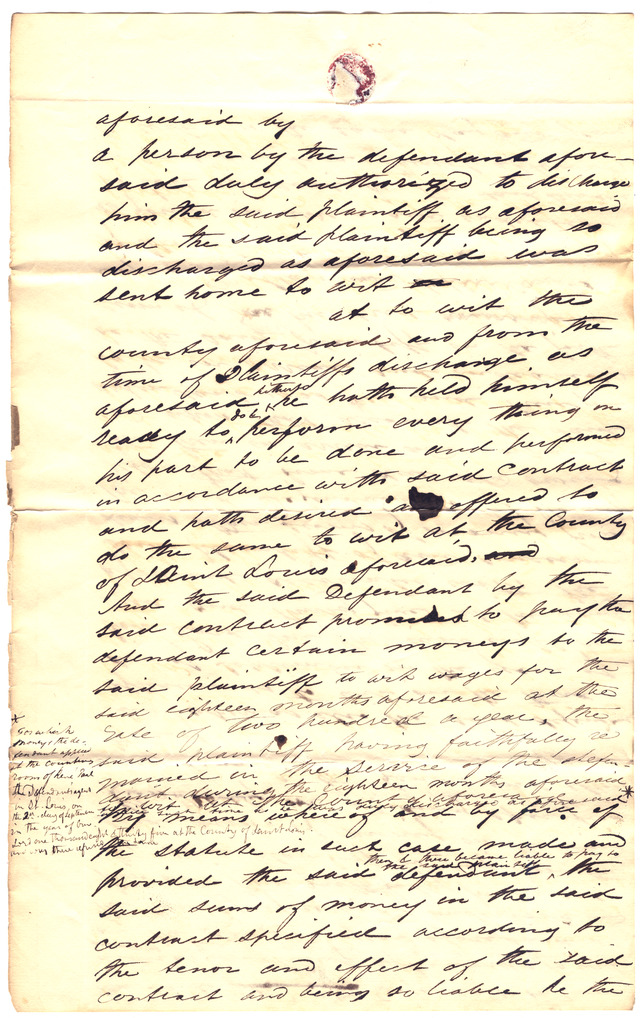 aforesaid by
a person by the defendant afore-
said duly authorized to discharge
him the said plaintiff as aforesaid
and the said plaintiff being so
discharged as aforesaid was
sent home to wit
at to wit the
county aforesaid and from the
time of Plaintiffs discharge as
hitherto
aforesaid he hath held himself
do &
ready to perform every thing on
his part to be done and performed
in accordance with said contract
and hath desired and offered to
do the same to wit at the County
of Saint Louis aforesaid, and
And the said Defendant by the
said contract promised to pay the
defendant certain moneys to the
said plaintiff to wit wages for the
said eighteen months aforesaid at the
rate of two hundred a year, the
said plaintiff having faithfully re
mained in the service of the defen-
dant during the eighteen months aforesaid
to wit at the County aforesaid
By means whereof and by force of
the statute in such case made and
then & there became liable to pay to
the said plaintiff
provided the said defendant, the
said sums of money in the said
contract specified according to
the tenor and effect of the said
contract and being so liable he the
For which
money, the de-
fendant applied
at the counting
room of
the Defendants agent
in St. Louis, on
the 2nd day of September
in the year of our
Lord one thousand eight & thirty five at the County of Saint Louis
and was there refused